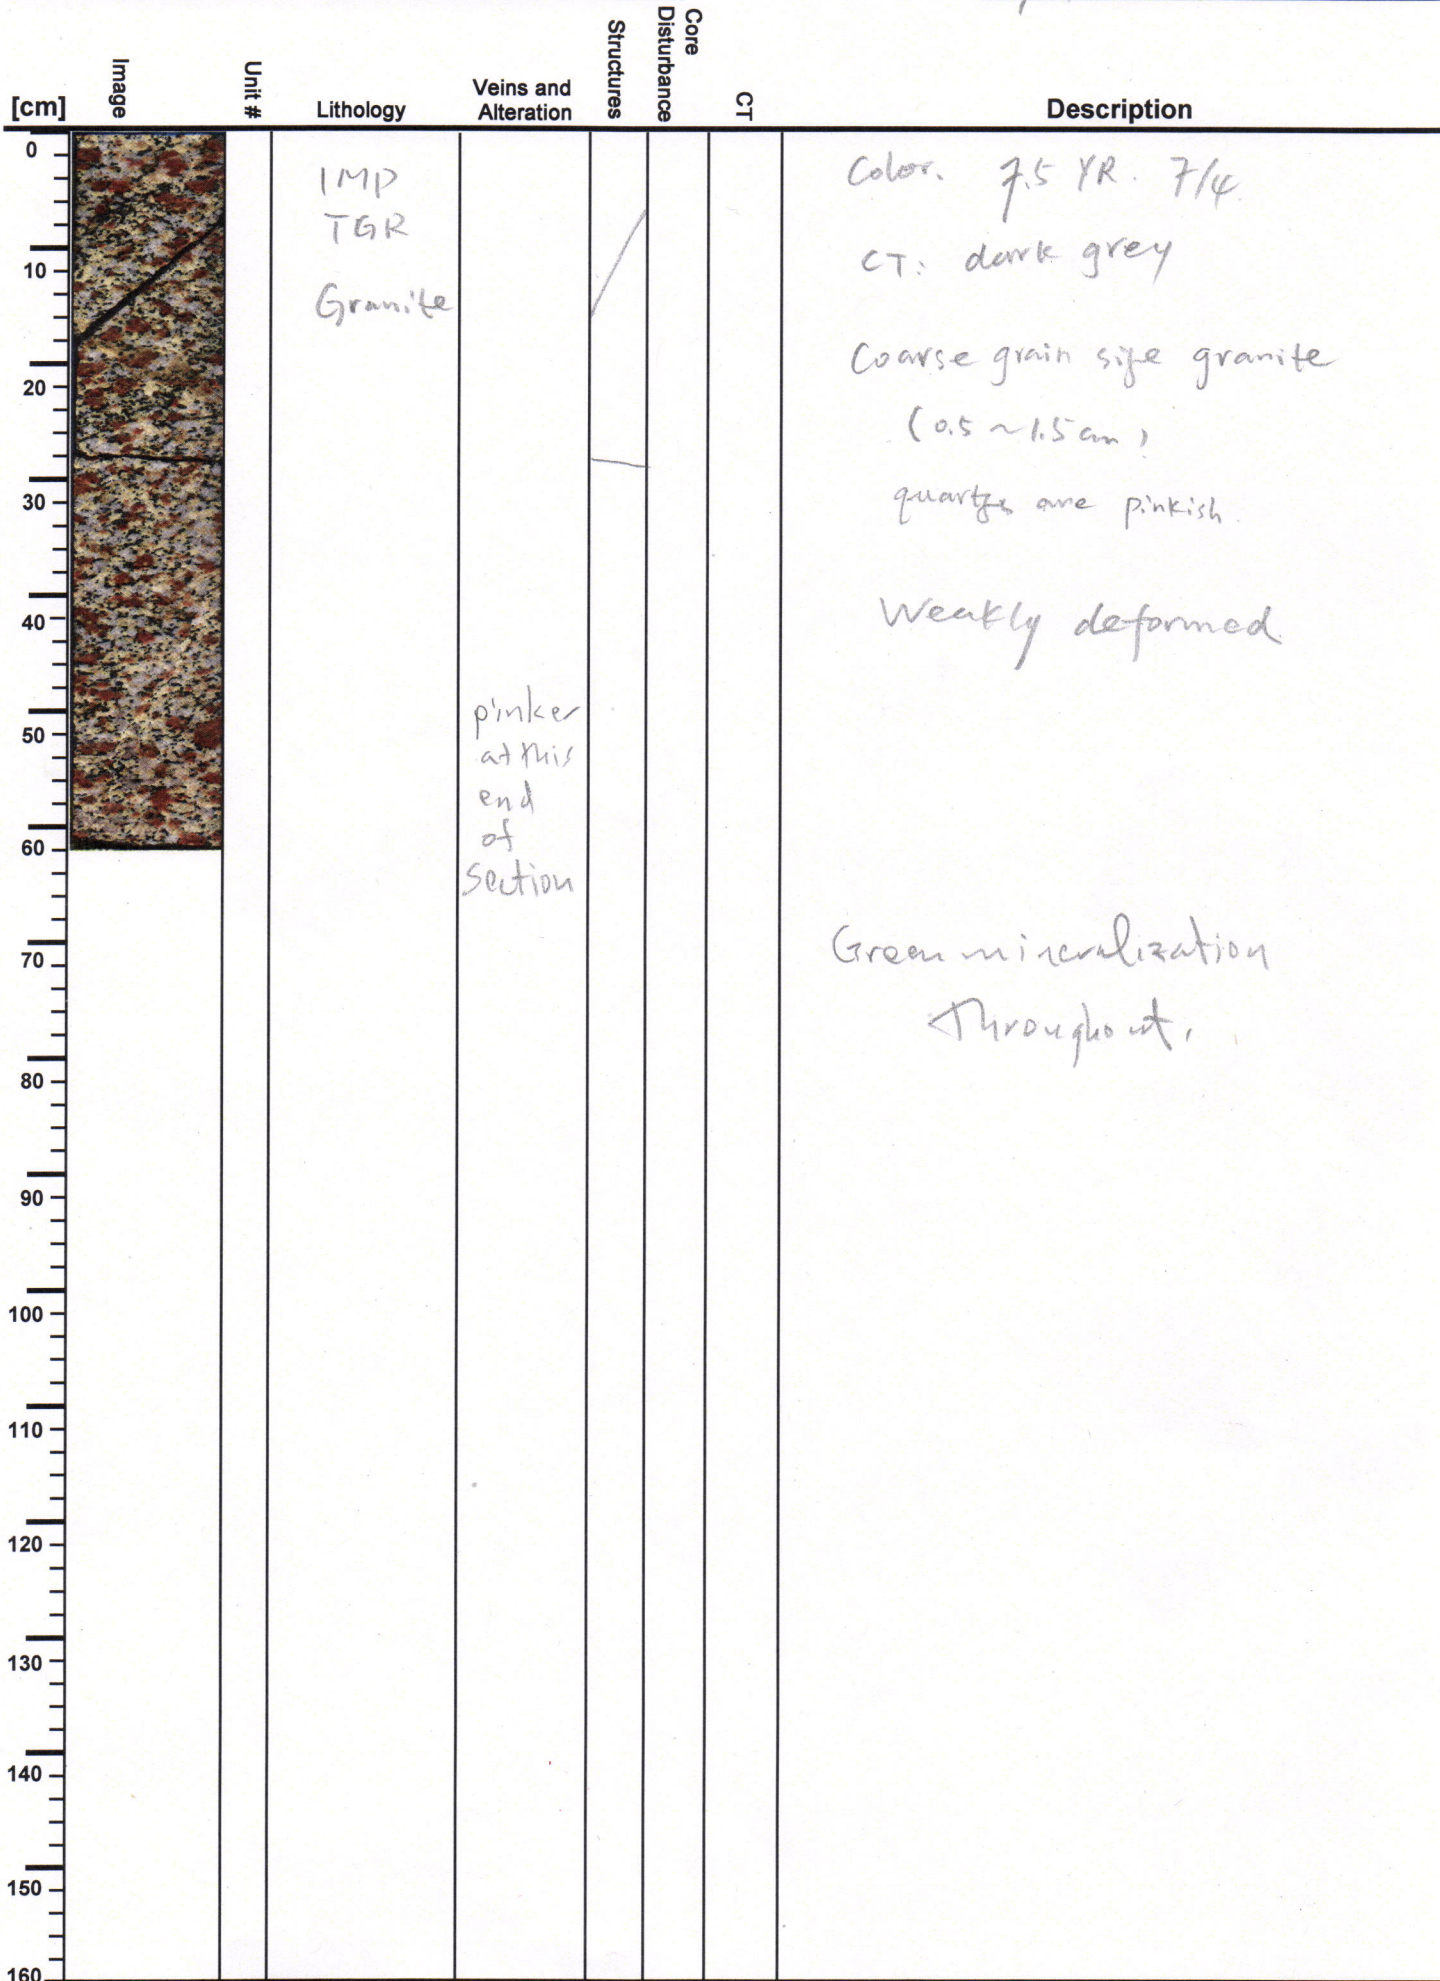 [cm]
Image
Unit #
Lithology
Veins and
Alteration
Structures
Core
Disturbance
CT
Description
0
10
20
30
40
50
60
70
80
90
100
110
120
130
140
150
160
IMP
TGR
Granite
pinker
at this
end
of
Section
Color. 7.5 YR. 7/4
CT: dark grey
Coarse grain size granite
(0.5 ~ 1.5 cm)
quartzs are pinkish.
Weakly deformed.
Green mineralization
Throughout.